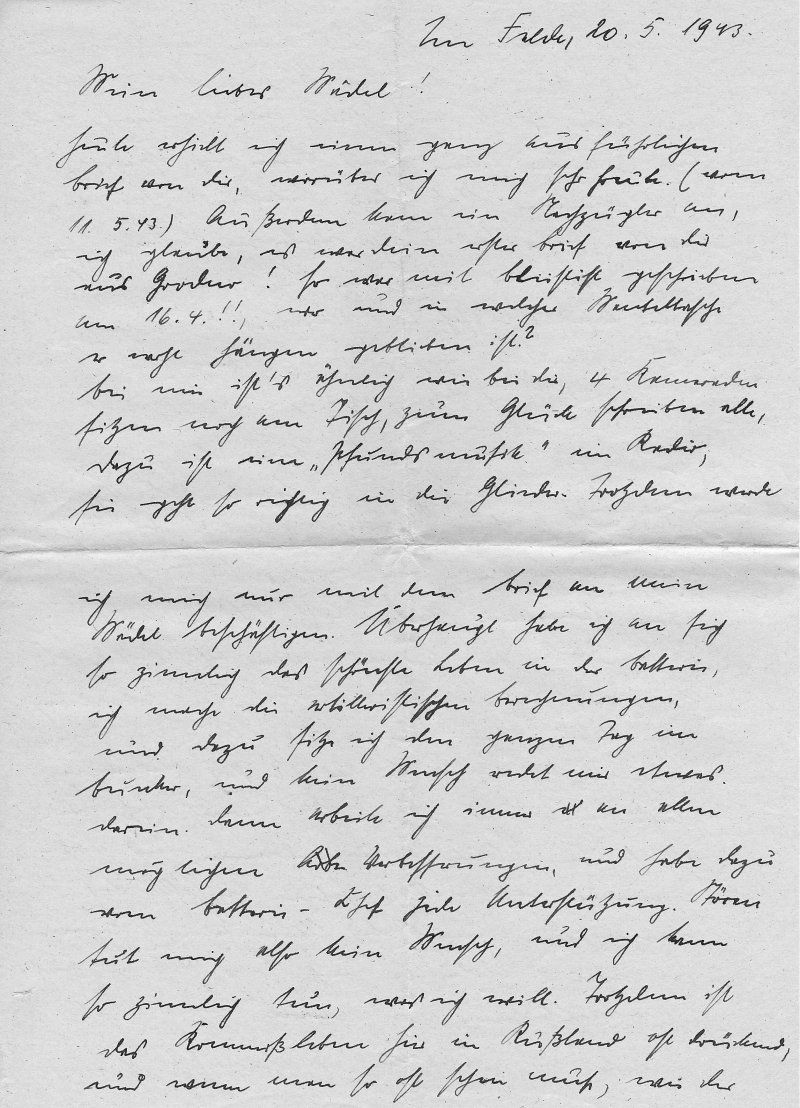 Im Felde, 20. 5. 1943.
Mein liebes Mädel!
heute erhielt ich einen ganz ausführlichen
brief von dir, worüber ich mich sehr freute. (vom
11. 5.43.) Außerdem kam ein Nachzügler an,
ich glaube, es war dein erster brief von dir
aus Grodno! So war mit bleistift geschrieben
am 16.4.!!, wo und in welcher Manteltasche
er wohl hängen geblieben ist?
bei mir ist's ähnlich wie bei dir, 4 Kameraden
sitzen noch am Tisch, zum Glück schreiben alle,
dazu ist eine „Pfundsmusik" im Radio,
sie geht so richtig in die Glieder. Trotzdem werde
ich mich nur mit dem brief an mein
Mädel beschäftigen. Überhaupt habe ich an sich
so ziemlich das schönste Leben in der batterie,
ich mache die artilleristischen berechnungen,
und dazu sitze ich den ganzen Tag im
bunker, und kein Mensch redet mir etwas
darein. dann arbeite ich immer an allen
möglichen Verbesserungen, und habe dazu
vom batterie-Chef jede Unterstützung. Stören
tut mich also kein Mensch, und ich kann
so ziemlich tun, was ich will. Trotzdem ist
das Kommißleben hier in Rußland oft drückend,
und wenn man so oft sehen muß, wie der